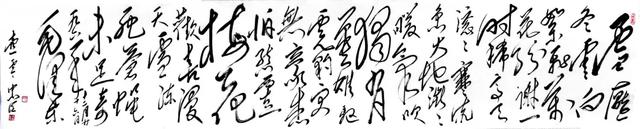 雪压
冬云白
絮飞万
花纷谢一
时稀高天
滚滚寒流
急大地微微
暖气吹
独有
英雄驱
虎豹更
无豪杰
怕熊罴
梅花
欢喜漫
天雪冻
死苍蝇
未足奇
毛泽东